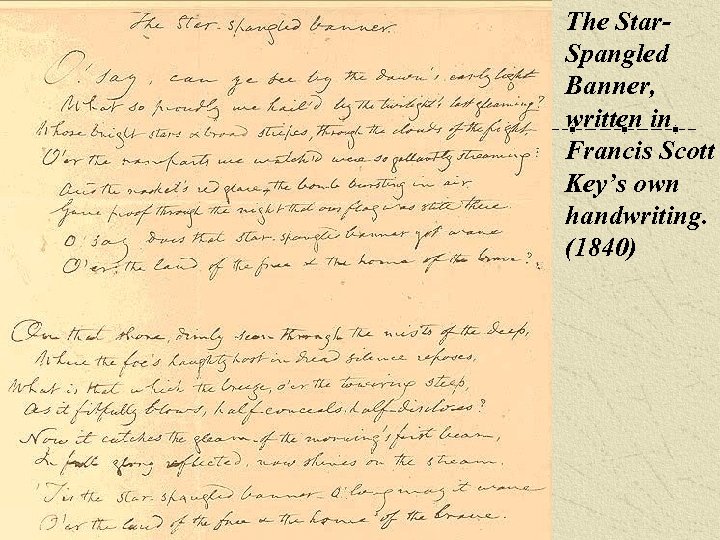 The Star-spangled banner.
O! say, can ye see by the dawn's early light
What so proudly we hail'd by the twilight's last gleaming?
Whose bright stars & broad stripes, through the clouds of the fight
O'er the ramparts we watch'd were so gallantly streaming?
And the rocket's red glare, the bomb bursting in air
Gave proof through the night that our flag was still there
O! say does that star-spangled banner yet wave
O'er the land of the free & the home of the brave?
On that shore, dimly seen through the mists of the deep,
Where the foe's haughty host in dread silence reposes,
What is that which the breeze, o'er the towering steep,
As it fitfully blows, half conceals half discloses?
Now it catches the gleam of the morning's first beam,
In full glory reflected, now shines on the stream.
'Tis the star-spangled banner O! long may it wave
O'er the land of the free & the home of the brave.
The Star-
Spangled
Banner,
written in
Francis Scott
Key's own
handwriting.
(1840)